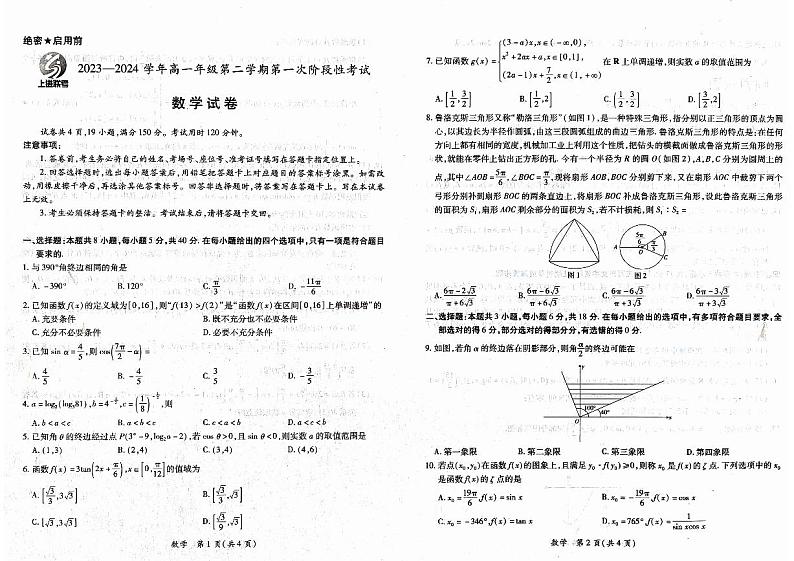 绝密★启用前
上进联考
2023—2024学年高一年级第二学期第一次阶段性考试
数学试卷
试卷共4页,19小题,满分150分。考试用时120分钟。
注意事项:
1.答卷前,考生务必将自己的姓名、考场号、座位号、准考证号填写在答题卡指定位置上。
2.回答选择题时,选出每小题答案后,用铅笔把答题卡上对应题目的答案标号涂黑。如需改
动,用橡皮擦干净后,再选涂其他答案标号。回答非选择题时,将答案写在答题卡上。写在本试卷
上无效。
3.考生必须保持答题卡的整洁。考试结束后,请将答题卡交回。
一、选择题:本题共8小题,每小题5分,共40分.在每小题给出的四个选项中,只有一项是符合题目
要求的.
1.与390°角终边相同的角是
A. -390° B. 120° C. π/3 D. -11π/6
2.已知函数f(x)的定义域为[0,16],则“f(13)>f(2)”是“函数f(x)在区间[0,16]上单调递增”的
A. 充要条件 B. 既不充分也不必要条件
C. 充分不必要条件 D. 必要不充分条件
3.已知sin α=4/5,则cos(7π/2-α)=
A. 4/5 B. -4/5 C. 3/5 D. -3/5
4. a=log₂(log₃81), c=(1/8) ,则
A. b<a<c B. a<b<c C. c<a<b D. c<b<a
5.已知角θ的终边经过点P(3ᵃ-9,log₂a-2),若cos θ>0,且sin θ<0,则实数a的取值范围是
A. (1,3) B. (2,4) C. (3,4) D. (4,6)
6.函数f(x)=3tan(2x+π/6),x∈[0,π/12]的值域为
A. [√3/3,3√3] B. [√3/3,√3]
C. [√3,3√3] D. [√3/9,√3]
数学 第1页(共4页)
7.已知函数g(x)={(3-a)x,x∈(-∞,0), 在R上单调递增,则实数a的取值范围为
2ax²+x+a,x∈[0,1],
(2a-1)x+7/2,x∈(1,+∞)
A. [1/2,3/2] B. [1/2,2] C. [1/3,3/2] D. [1/3,2]
8.鲁洛克斯三角形又称“勒洛三角形”(如图1),是一种特殊三角形,指分别以正三角形的顶点为圆
心,以其边长为半径作圆弧,由这三段圆弧组成的曲边三角形.鲁洛克斯三角形的特点是:在任何
方向上都有相同的宽度,机械加工业上利用这个性质,把钻头的横截面做成鲁洛克斯三角形的形
状,就能在零件上钻出正方形的孔.今有一个半径为R的圆O(如图2),A,B,C分别为圆周上的
点,其中∠AOB=5π/6,∠BOC=π/3,现将扇形AOB,BOC分别剪下来,又在扇形AOC中裁剪下两个
弓形分别补到扇形BOC的两条直边上,将扇形BOC补成鲁洛克斯三角形,设此鲁洛克斯三角形
的面积为S₁,扇形AOC剩余部分的面积为S₂,若不计损耗,则S₁:S₂=
5π/6 π/3 A B C O
图1 图2
A. (6π-2√3)/(π+6√3) B. (6π-6√3)/(π+6√3) C. (6π-6√3)/(π+3√3) D. (6π-2√3)/(π+3√3)
二、选择题:本题共3小题,每小题6分,共18分.在每小题给出的选项中,有多项符合题目要求,全
部选对的得6分,部分选对的得部分分,有选错的得0分.
9.如图,若角α的终边落在阴影部分,则角α/2的终边可能在
y 100° 40° O x
A. 第一象限 B. 第二象限 C. 第三象限 D. 第四象限
10.若点(x₀,y₀)在函数f(x)的图象上,且满足y₀·f(y₀)≥0,则称x₀是f(x)的ζ点.下列选项中的x₀
是函数f(x)的ζ点的是
A. x₀=19π/6,f(x)=sin x B. x₀=-19π/6,f(x)=cos x
C. x₀=-346°,f(x)=tan x D. x₀=765°,f(x)=1/(sin xcos x)
数学 第2页(共4页)